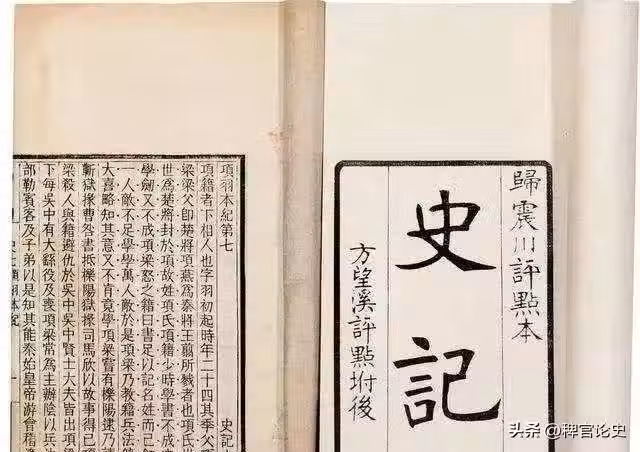 歸震川評點本
史記
方望溪評點坿後
項羽本紀第七
史記
項籍者下相人也字羽初起時年二十四其季父
梁梁父即楚將項燕為秦將王翦所戮者也項氏
世為楚將封於項故姓項氏項籍少時學書不成
學劍又不成項梁怒之籍曰書足以記名姓而已
一人敵不足學學萬人敵於是項梁乃教籍兵法
大喜略知其意又不肯竟學項梁嘗有櫟陽逮
蘄獄掾曹咎書抵櫟陽獄掾司馬欣以故事得已
梁殺人與籍避仇於吳中吳中賢士大夫皆出項
下每吳中有大繇役及喪項梁常為主辦陰以兵
部勒賓客及子弟以是知其能秦始皇帝游會稽
头条 @稗官论史